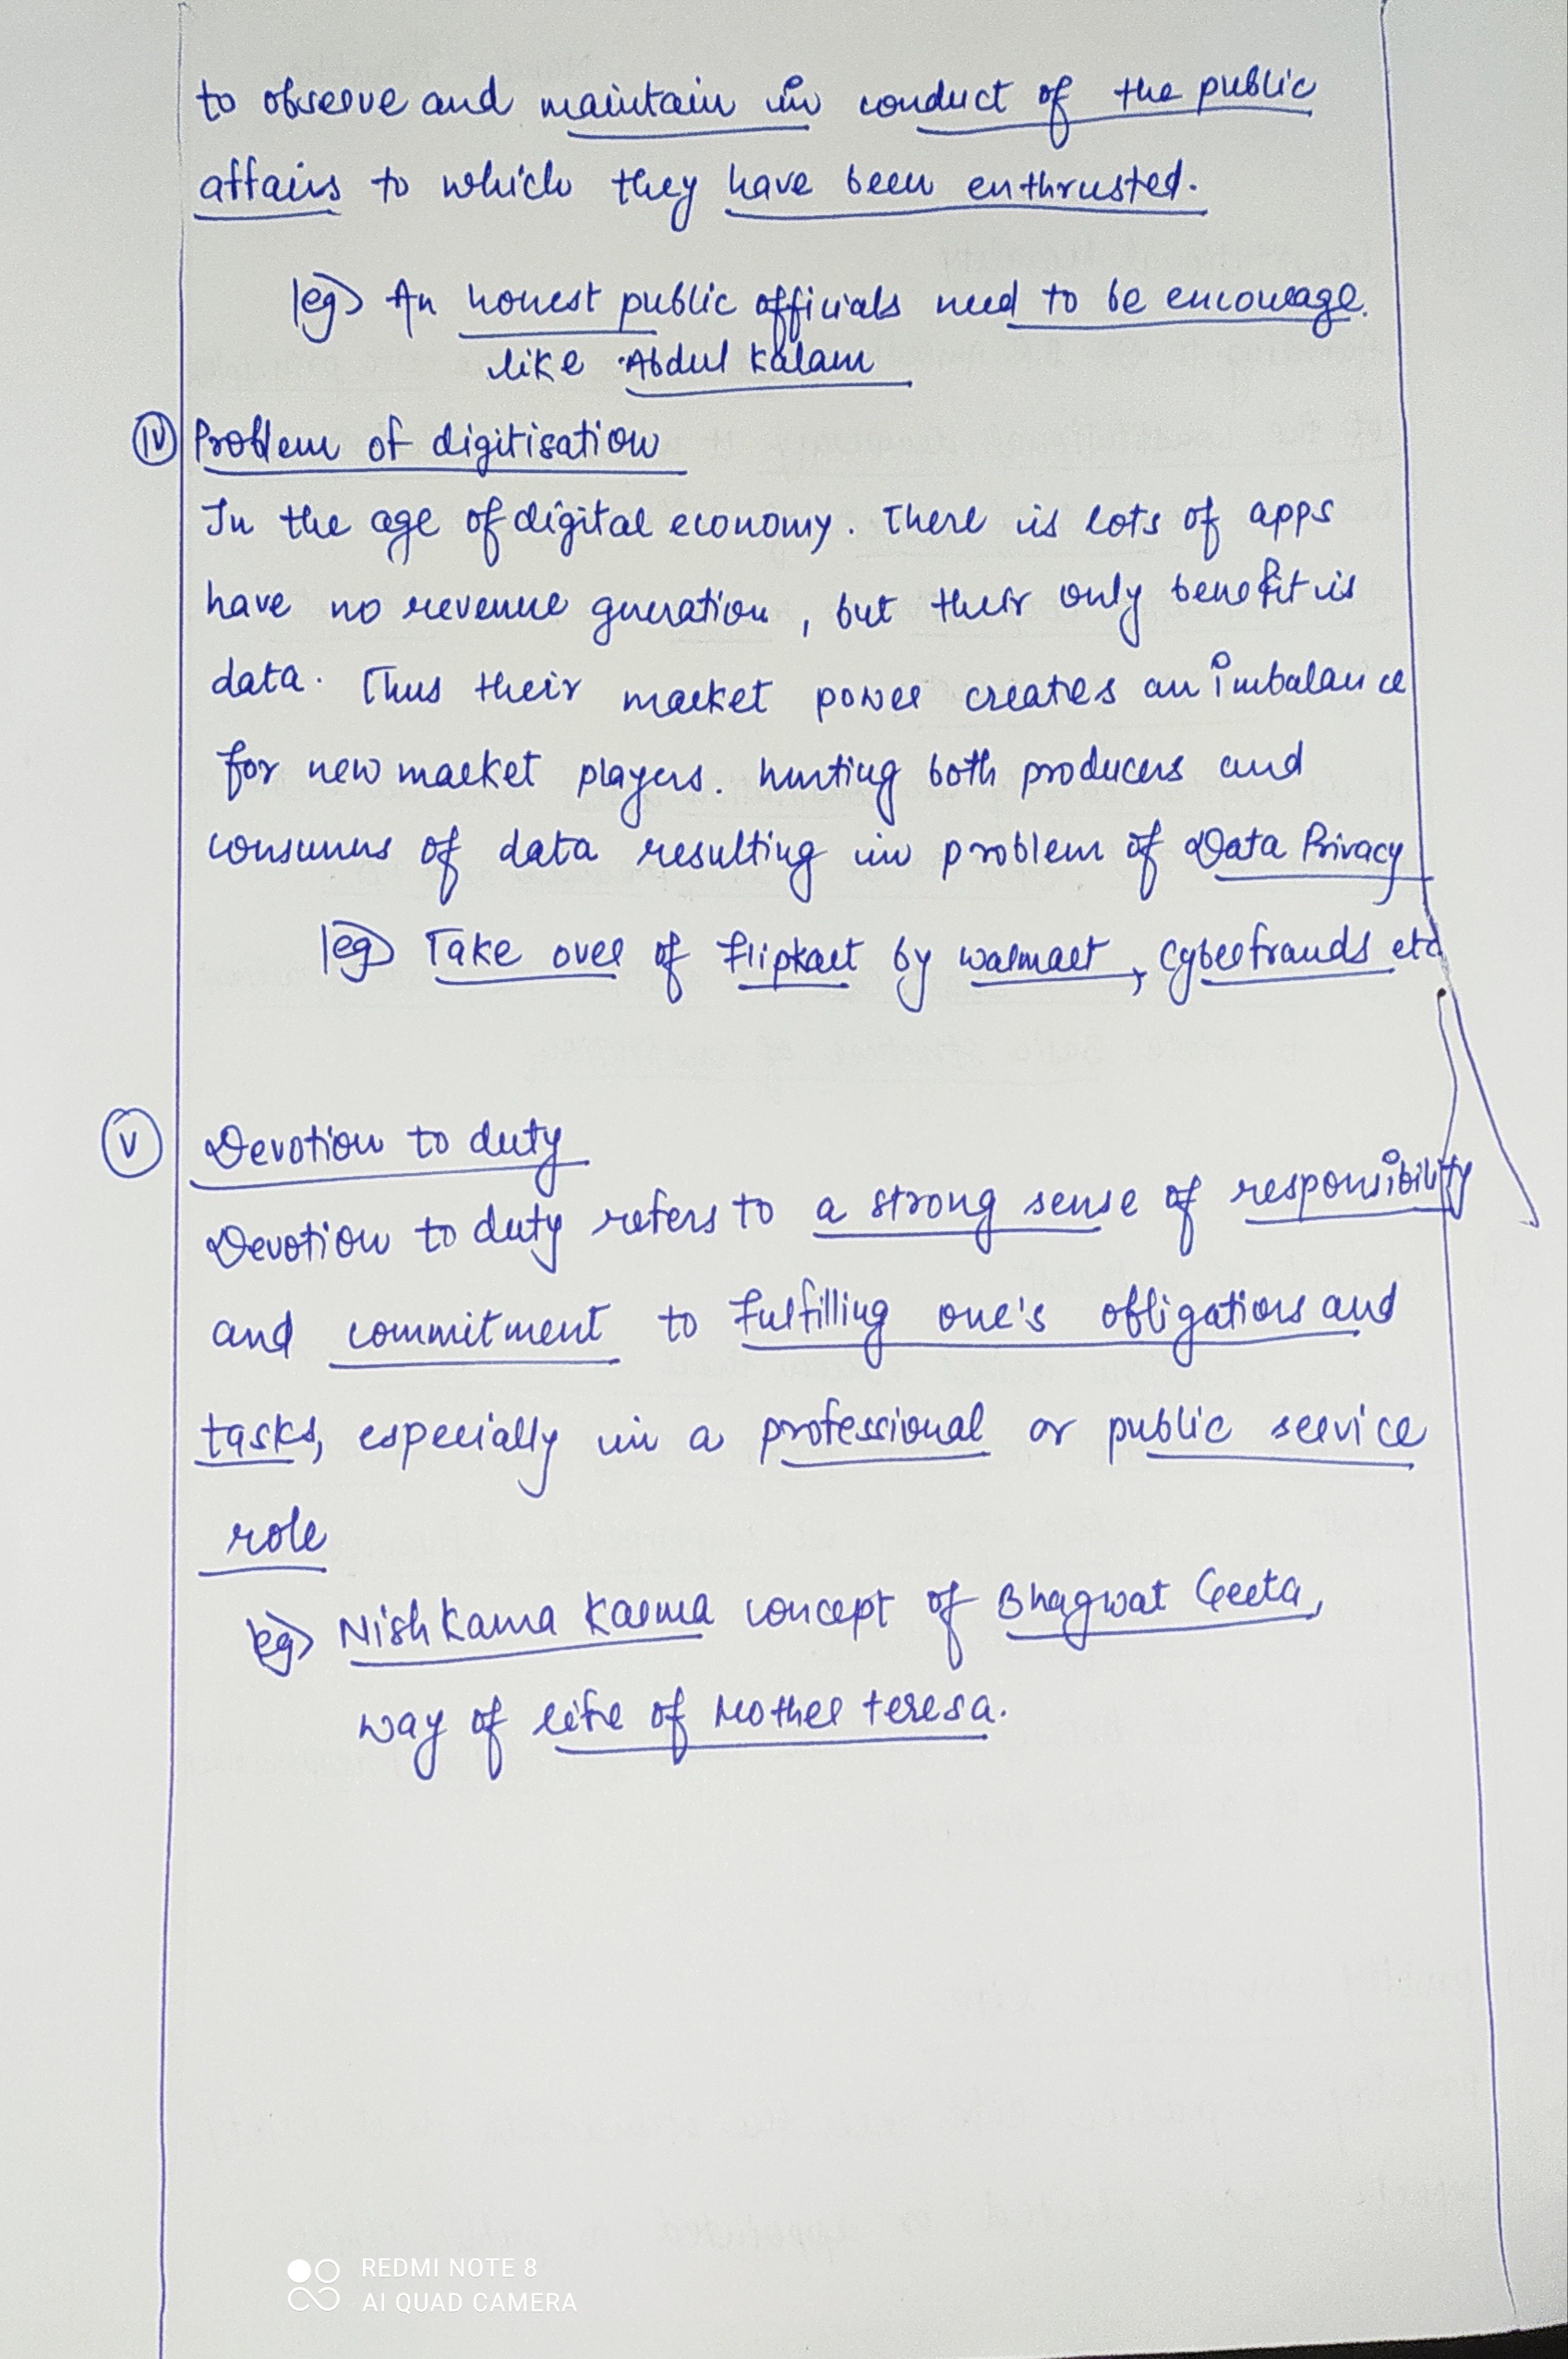 to observe and maintain in conduct of the public
affairs to which they have been enthrusted.
eg) An honest public officials need to be encourage.
like Abdul Kalam
(IV) Problem of digitisation
In the age of digital economy. There is lots of apps
have no revenue gneration, but their only benefit is
data. Thus their market power creates an imbalance
for new market players. hurting both producers and
consumers of data resulting in problem of Data Privacy
eg) Take over of flipkart by walmart, Cyberfrauds etc
(V) Devotion to duty
Devotion to duty refers to a strong sense of responsibility
and commitment to fulfilling one's obligations and
tasks, especially in a professional or public service
role
eg) Nish Kama Karma concept of Bhagwat Geeta,
way of life of Mother Teresa.
REDMI NOTE 8
AI QUAD CAMERA